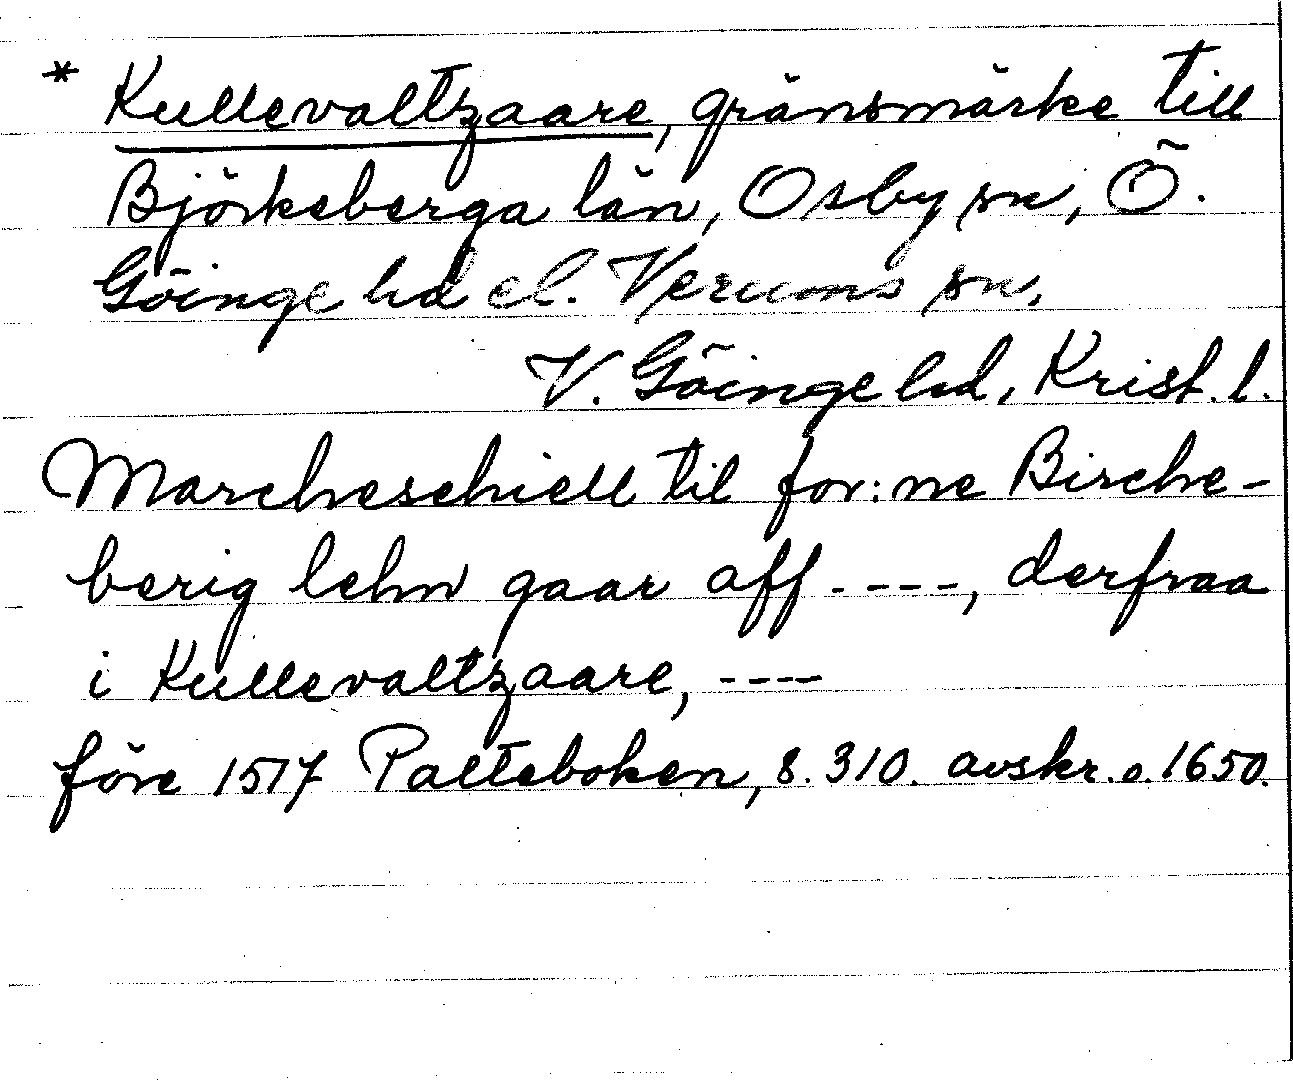 * Kullevaltzaare, gränsmärke till
Björkeberga län, Osby sn, Ö.
Göinge hd el. Verums sn,
V. Göinge hd, Krist. l.
Marcheschiell til for:ne Birche-
berig lehn gaar aff ----, derfraa
i Kullevaltzaare, ----
före 1517 Palteboken, s. 310. avskr. o. 1650.